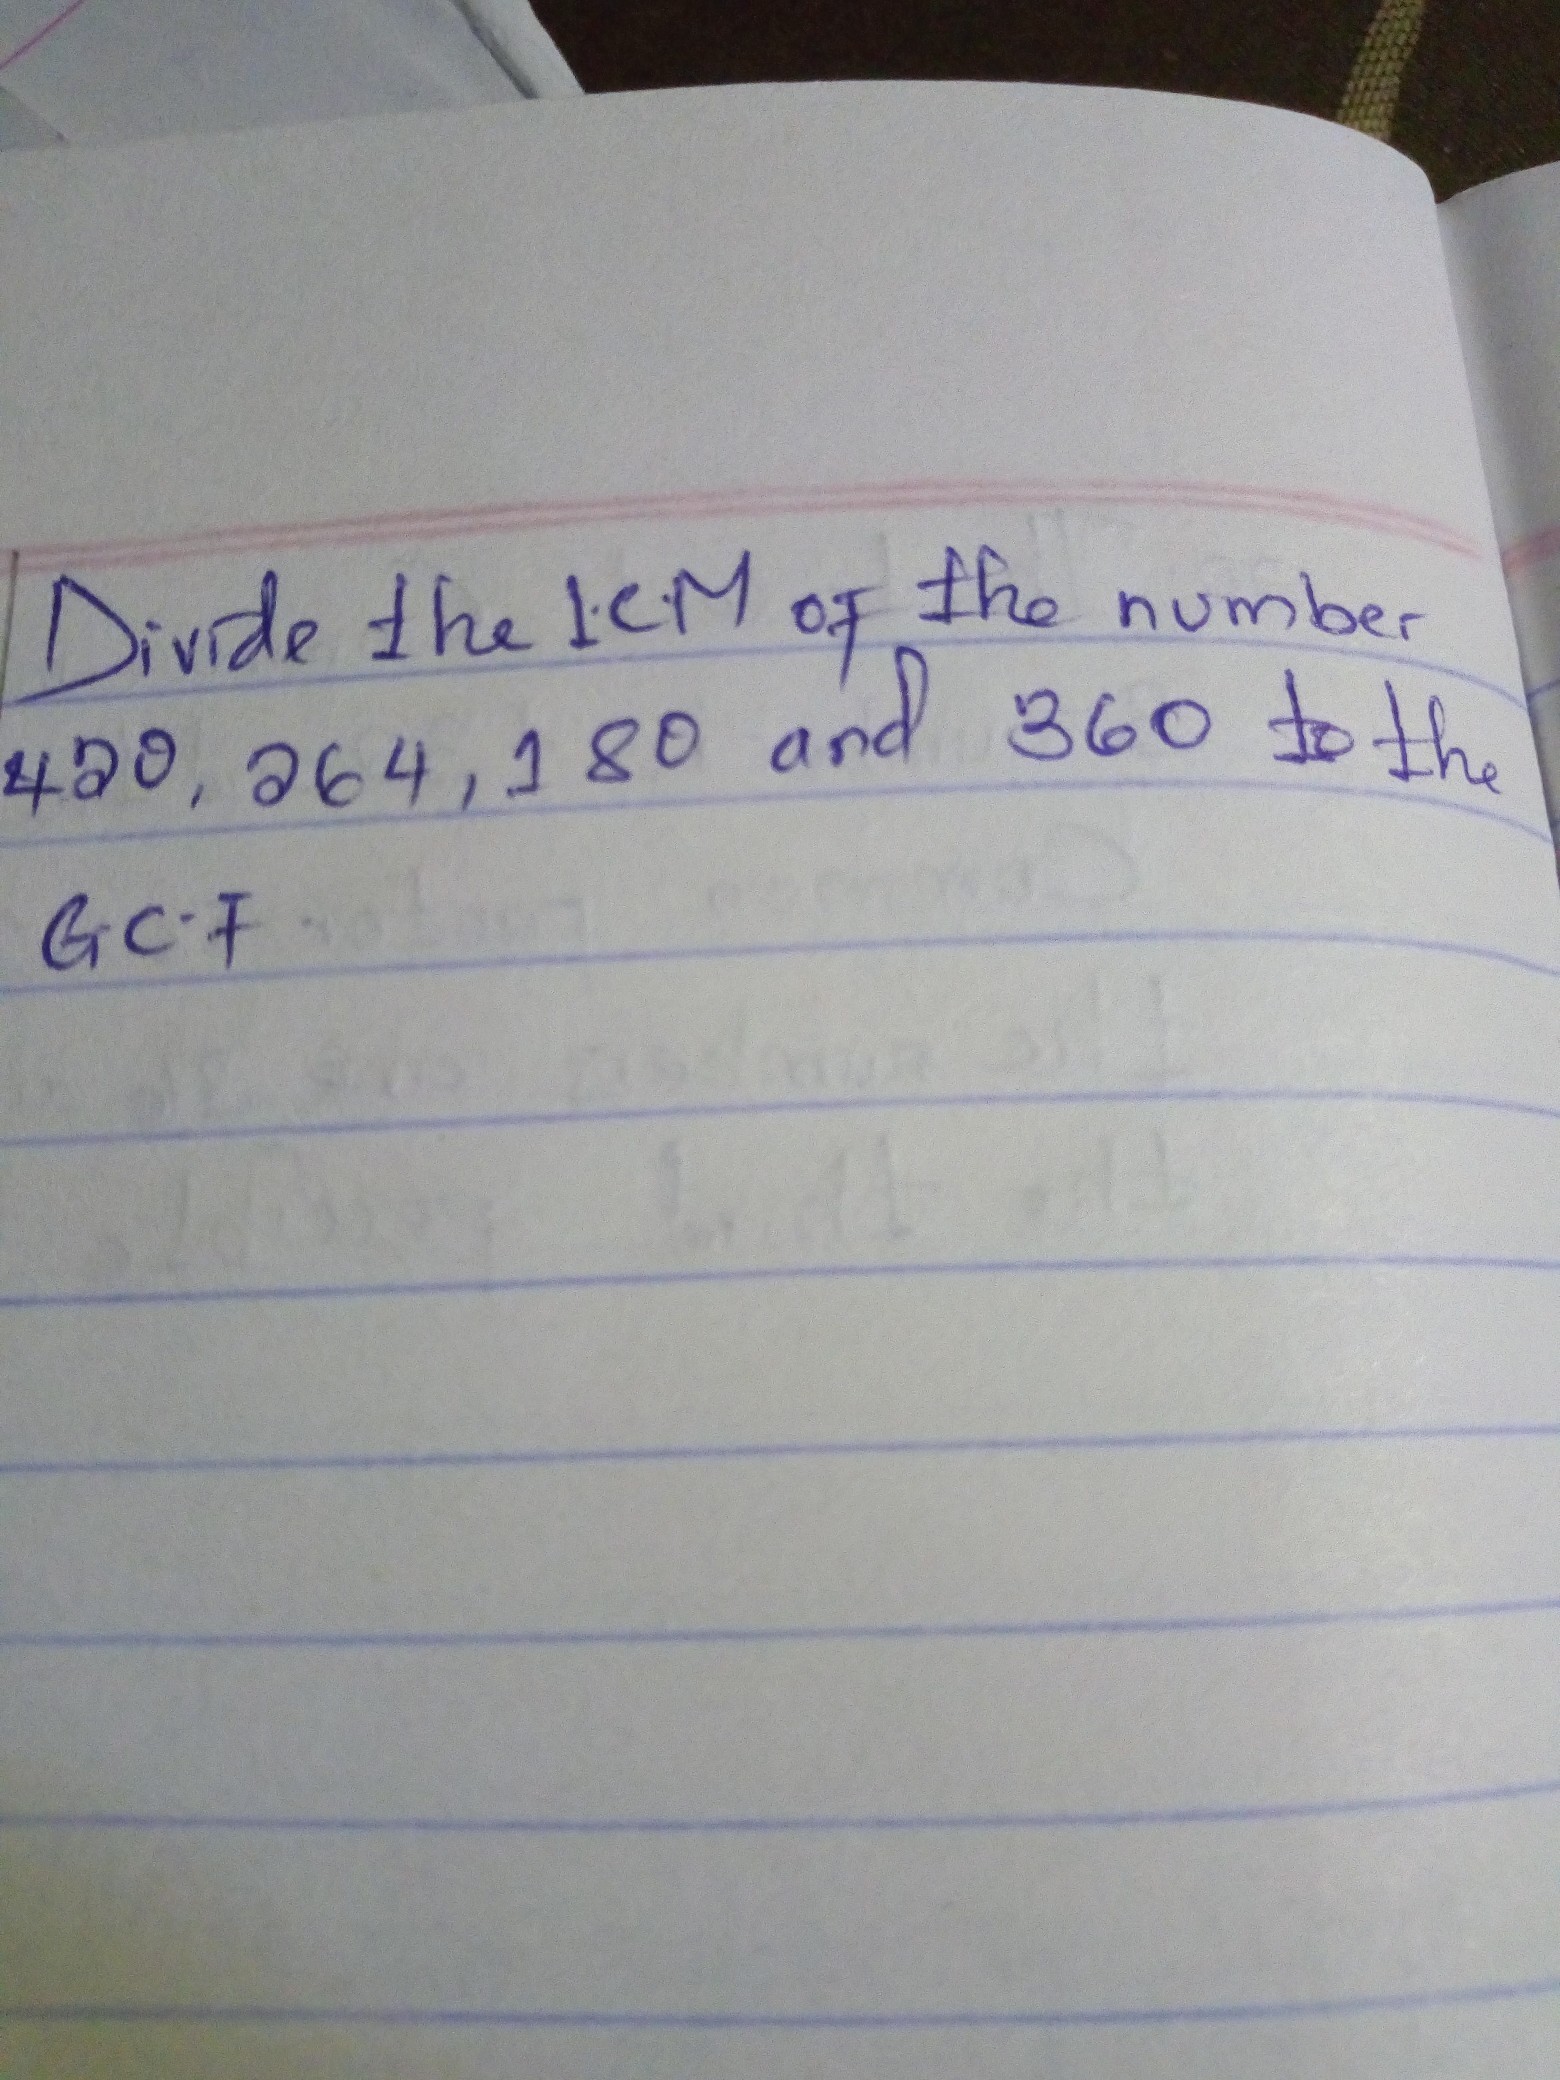 Divide the L.C.M of the number
420, 264, 180 and 360 to the
G.C.F